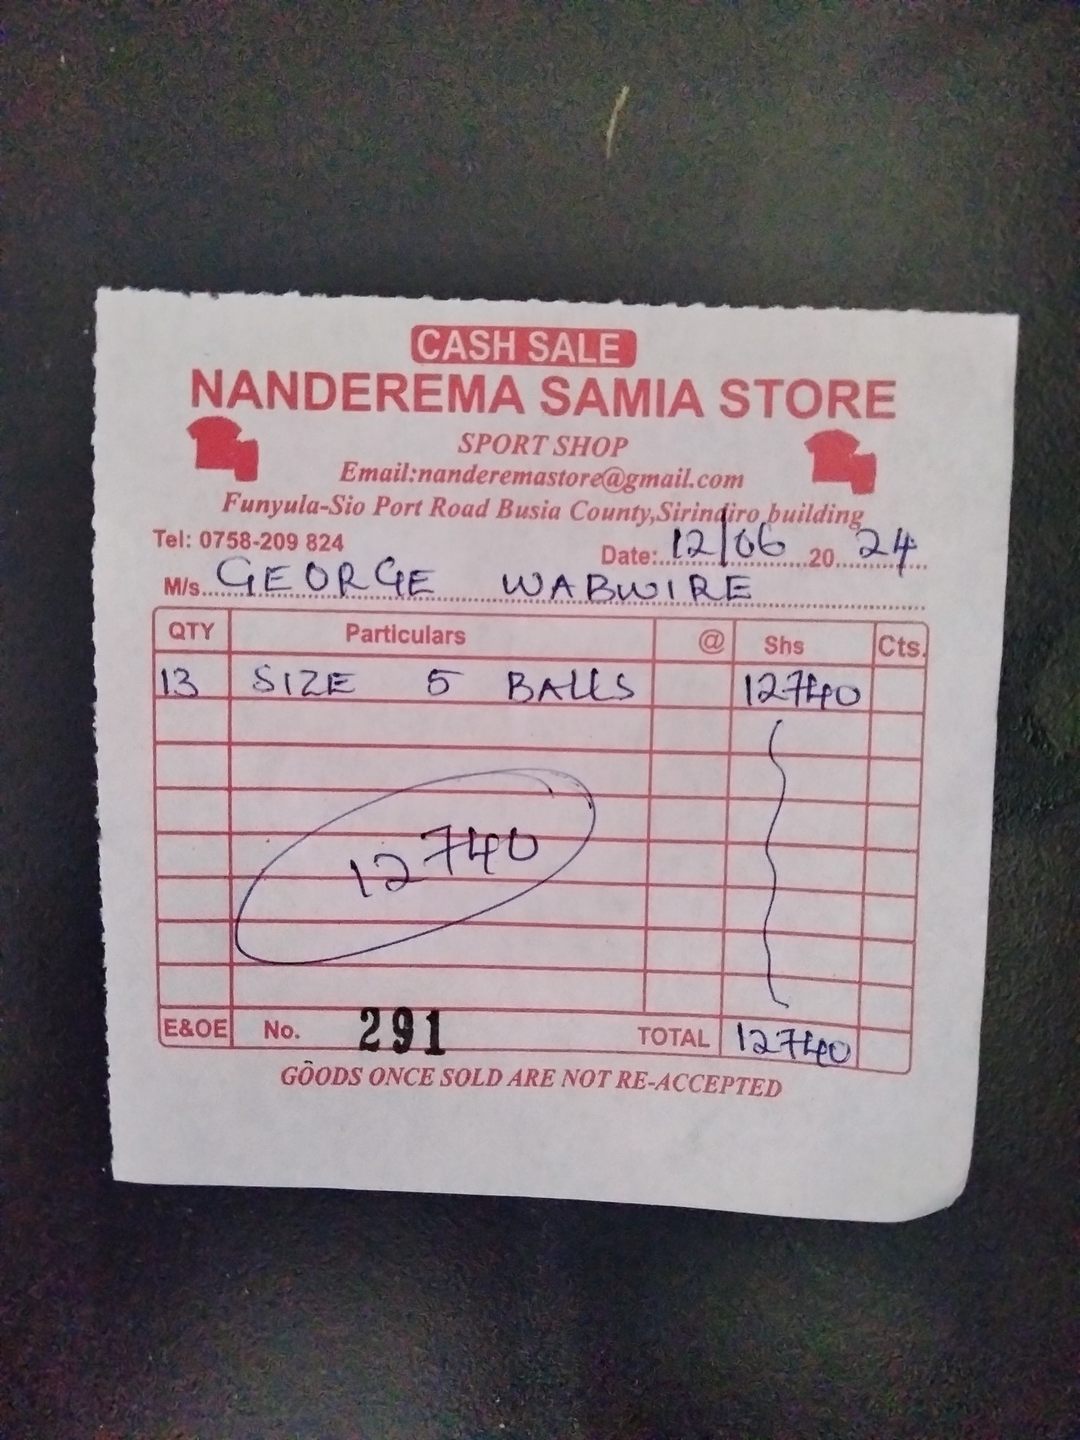 CASH SALE
NANDEREMA SAMIA STORE
SPORT SHOP
Email:nanderemastore@gmail.com
Funyula-Sio Port Road Busia County,Sirindiro building
Tel: 0758-209 824
Date:.. 12/06 20 24
M/s. GEORGE WABWIRE
QTY Particulars @ Shs Cts.
13 SIZE 5 BALLS 12740
12740
E&OE No. 291 TOTAL 12740
GOODS ONCE SOLD ARE NOT RE-ACCEPTED